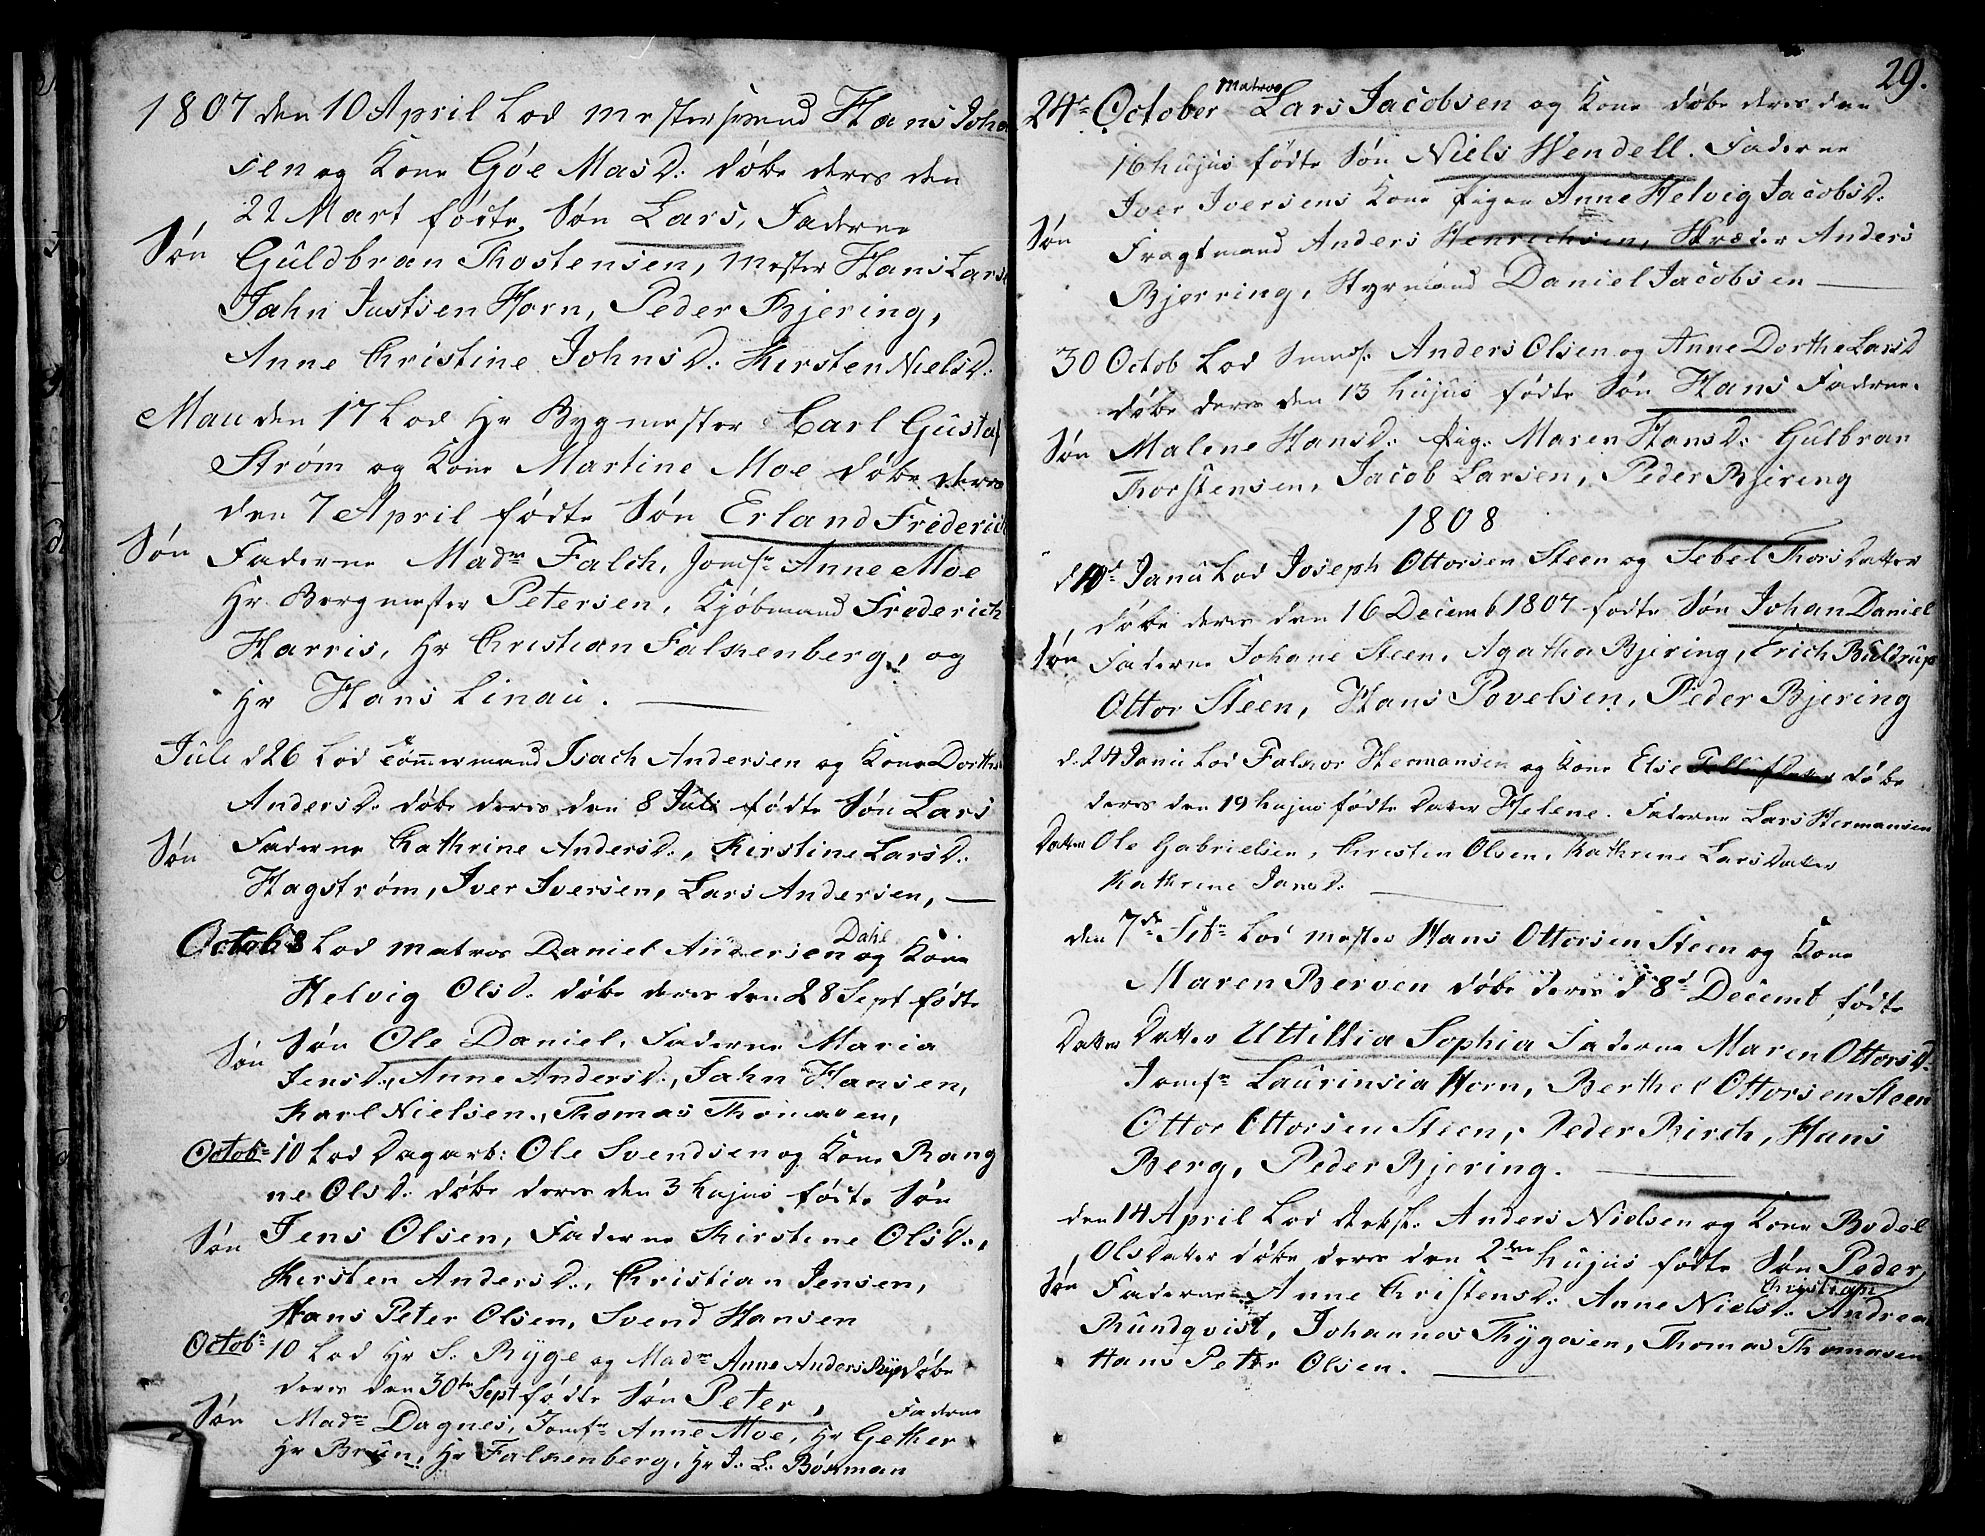 1807 den 10 April Lod Mestersvend Hans Joha
sen og Kone Góe Mas D: døbe deres den
22 Mart fødte Søn Lars, Faderne
Søn Guldbran Thostensen, Mester Hans Lars
Jahn Justsen Horn, Peder Bjering,
Anne Christine Johns D: Kirsten Niels D:
Mau den 17 Lod Hr Bygmester Carl Gustaf
Strøm og Kone Martine Moe døbe deres
den 7 April fødte Søn Erland Friderich
Søn Faderne Mad Falch, Jomf Anne Moe
Hr Bergmester Petersen, Kjøbmand Frederich
Harris, Hr Christian Falkenberg, og
Hr Hans Linau.
Juli d 26 Lod Tømmermand Isach Andersen og Kone Dorthe
Anders D. døbe deres den 8 Juli fødte Søn Lars
Søn Faderne Cathrine Anders D., Kirstine Lars D.
Hagstrøm, Iver Iversen, Lars Andersen,
Octob 8 Lod Matros Daniel Andersen Dahl og Kone
Helvig Ols D. døbe deres den 28 Sept fødte
Søn Søn Ole Daniel, Faderne Maria
Jens D., Anne Anders D., Jahn Hansen,
Karl Nielsen, Thomas Thomasen,
Octob 10 Lod Dagarb: Ole Svendsen og Kone Rang
ne Ols D. døbe deres den 3 hujus fødte Søn
Søn Jens Olsen, Faderne Kirstene Ols D.,
Kersten Anders D., Christian Jensen,
Hans Peter Olsen, Svend Hansen
Octob 10 Lod Hr S. Ryge og Mad Anne Anders Ryge døbe
deres den 30te Sept fødte Søn Peter, Faderne
Søn Mad Dagnes, Jomf Anne Moe, Hr Gether
Hr Brun, Hr Falkenberg, Hr J. L. Bøkman
29.
24 October Matros Lars Jacobsen og Kone døbe deres den
16 hujus fødte Søn Niels Wendell. Faderne
Iver Iversens Kone Pigen Anne Helvig Jacobs D:
Søn Fragtmand Anders Henrichsen, Skræder Anders
Bjerring, Styrmand Daniel Jacobsen
30 Octob Lod Anders Olsen og Anne Dorthe Lars D
døbe deres den 13 hujus fødte Søn Hans Faderne.
Søn Malene Hans D: Pig. Maren Hans D: Gulbran
Thorstensen, Jacob Larsen, Peder Bjering
1808
d 10 Janu Lod Joseph Ottorsen Steen og Sebel Thors Datter
døbe deres den 16 Decemb 1807 fødte Søn Johan Daniel
Søn Faderne Johane Steen, Agatha Bjering, Erich Buldrup
Ottor Steen, Hans Povelsen, Peder Bjering
d. 24 Janu Lod Falkor Hermansen og Kone Else døbe
deres den 19 hujus fødte Datter Helene. Faderne Lars Hermansen
Datter Ole Gabrielsen, Christen Olsen, Kathrene Lars Datter
Kathrene Jans D.
den 7de Feb Lod Mester Hans Ottorsen Steen og Kone
Maren Berven døbe deres d 8 Decemb fødte
Datter Datter Uttillia Sophia Faderne Maren Ottors D.
Jomf Laurinsia Horn, Berthel Ottorsen Steen
Ottor Ottorsen Steen, Peder Birch, Hans
Berg, Peder Bjering.
den 14 April Lod Anders Nielsen og Kone Bodel
Ols Datter døbe deres den 2den hujus fødte Søn Peder
Christian
Søn Faderne Anne Christens D: Anne Niels D: Andrea
Rundqvist, Johannes Thygesen, Thomas Thomasen
Hans Peter Olsen.